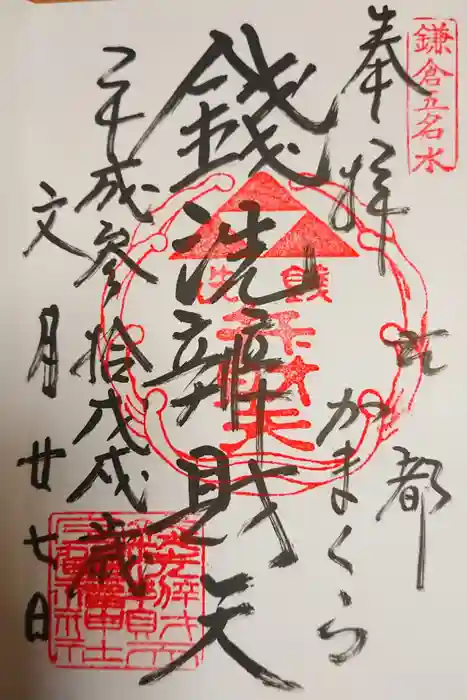 鎌倉五名水
奉拝
古都
かまくら
銭洗辯財天
平成参拾戊戌歳
文月廿七日